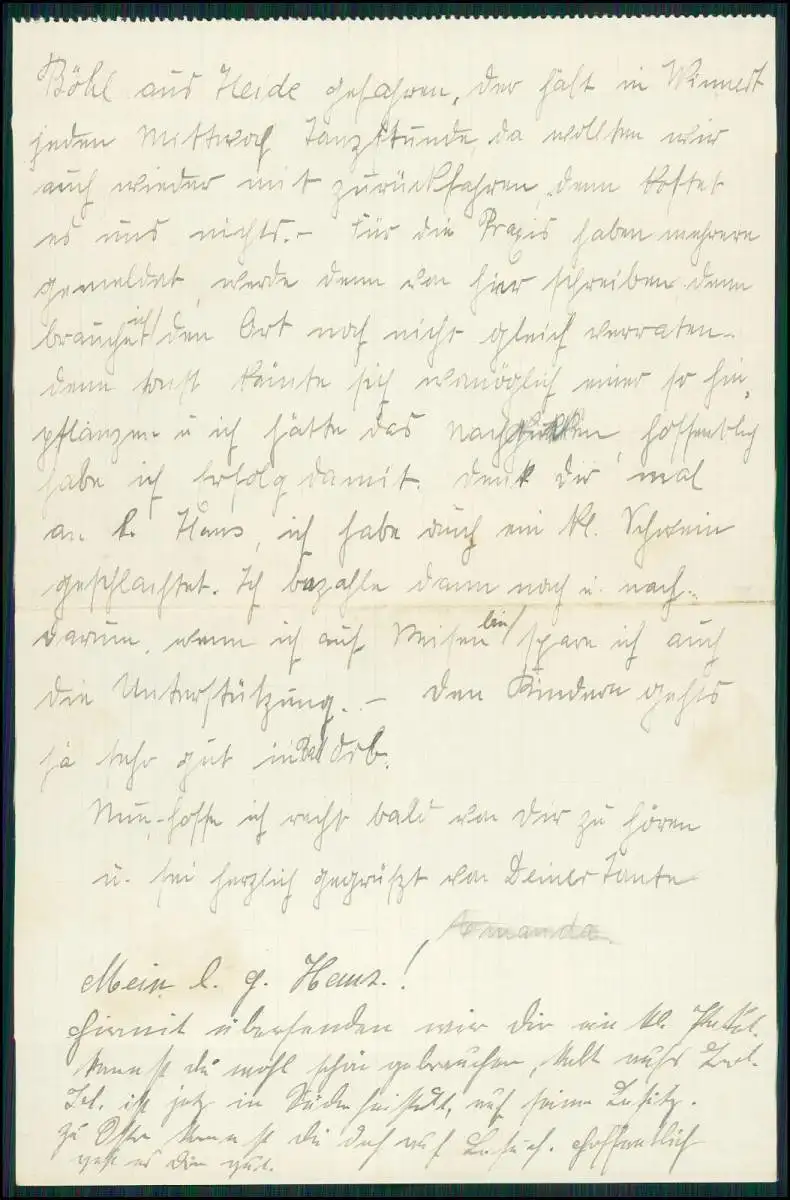 Böhl aus Heide gefahren, der hält in Winnert
jeden Mittwoch Tanzstunde, da wollten wir
auch wieder mit zurückfahren, denn kostet
es uns nichts. – Für die Praxis haben mehrere
gemeldet, werde denn von hier schreiben denn
brauche ich den Ort noch nicht gleich verraten.
denn sonst könnte sich womöglich einer so hin-
pflanzen u ich hätte das nachgucken, hoffentlich
habe ich Erfolg damit. Denk dir mal
an l. Hans, ich habe auch ein kl. Schwein
geschlachtet. Ich bezahle dann nach u. nach
darum, wenn ich auf Reisen bin spare ich auch
die Unterstützung. – Den Kindern gehts
ja sehr gut in
Nun hoffe ich recht bald von Dir zu hören
u. sei herzlich gegrüßt von Deiner Tante
Amanda.
Mein l. g. Hans.!
Hiermit übersenden wir Dir ein kl. Paket.
kannst du wohl schön gebrauchen,
ist jetz in Süderheistedt, auf seinen Besitz.
zu Ostern kannst du doch auf Besuch. Hoffentlich
geht es Dir gut.